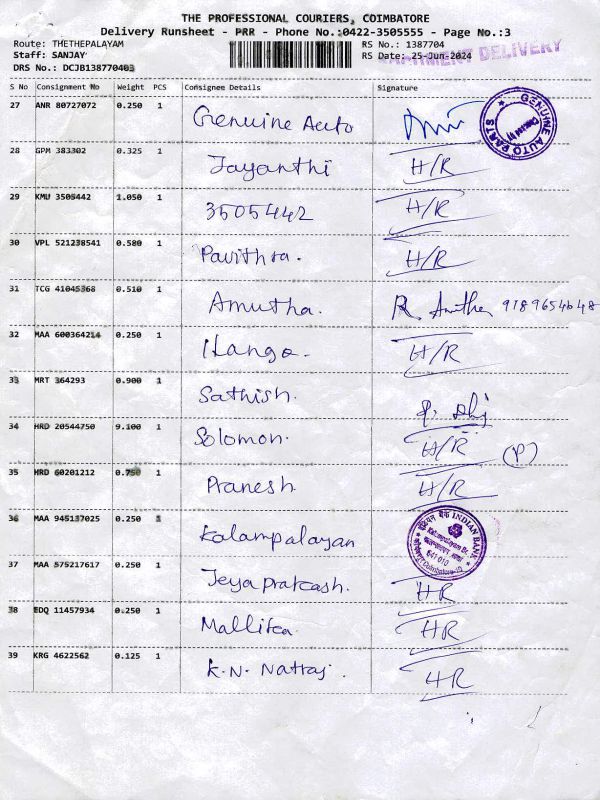 THE PROFESSIONAL COURIERS, COIMBATORE
Delivery Runsheet - PRR - Phone No.:0422-3505555 - Page No.:3
Route: THETHEPALAYAM RS No.: 1387704
Staff: SANJAY RS Date: 25-Jun-2024 DELIVERY
DRS No.: DCJB138770403
S No Consignment No Weight PCS Consignee Details Signature
27 ANR 80727072 0.250 1 Genuine Auto GENUINE AUTO PARTS
28 GPM 383302 0.325 1 Jayanthi H/R
29 KMU 3505442 1.050 1 3505442 H/R
30 VPL 521238541 0.580 1 Pavithra. H/R
31 TCG 41045368 0.510 1 Amutha. R. Amutha 9189654648
32 MAA 600364214 0.250 1 Ilango. H/R
33 MRT 364293 0.900 1 Sathish.
34 HRD 20544750 9.100 1 Solomon. H/R (P)
35 HRD 60201212 0.750 1 Pranesh H/R
36 MAA 945137025 0.250 1 Kalampalayan INDIAN BANK 641 010
37 MAA 575217617 0.250 1 Jeya Prakash. HR
38 EDQ 11457934 0.250 1 Mallika. HR
39 KRG 4622562 0.125 1 K.N. Natraj. HR